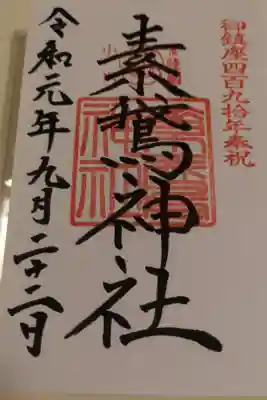 御鎮座四百九拾年奉祝
素鵞神社
令和元年九月二十二日